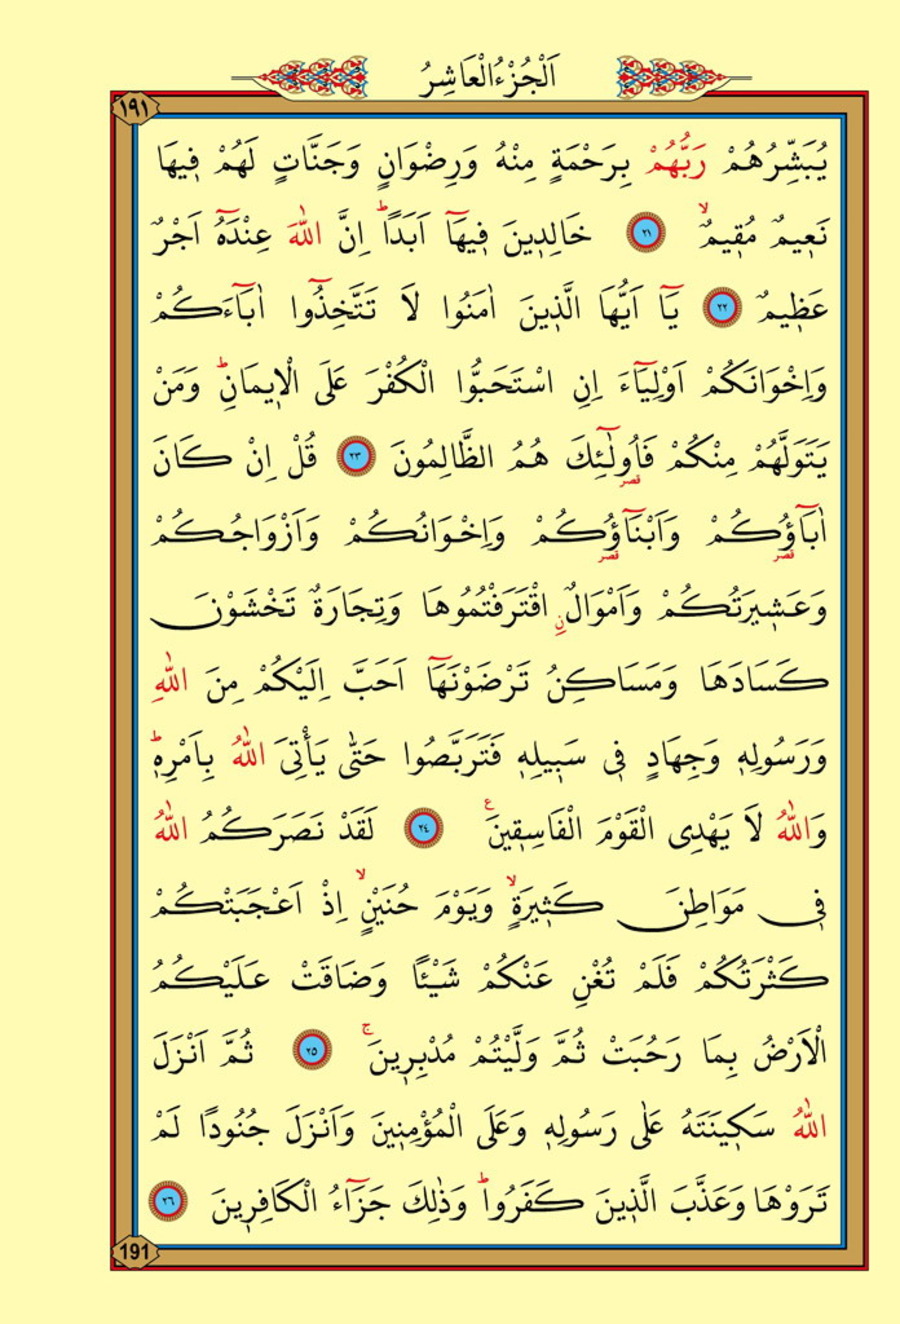 اَلْجُزْءُ الْعَاشِرُ
١٩١
يُبَشِّرُهُمْ رَبُّهُمْ بِرَحْمَةٍ مِنْهُ وَرِضْوَانٍ وَجَنَّاتٍ لَهُمْ ف۪يهَا
نَع۪يمٌ مُق۪يمٌۙ ٢١ خَالِد۪ينَ ف۪يهَٓا اَبَدًاۜ اِنَّ اللّٰهَ عِنْدَهُٓ اَجْرٌ
عَظ۪يمٌ ٢٢ يَٓا اَيُّهَا الَّذ۪ينَ اٰمَنُوا لَا تَتَّخِذُٓوا اٰبَٓاءَكُمْ
وَاِخْوَانَكُمْ اَوْلِيَٓاءَ اِنِ اسْتَحَبُّوا الْكُفْرَ عَلَى الْا۪يمَانِۜ وَمَنْ
يَتَوَلَّهُمْ مِنْكُمْ فَاُو۬لٰٓئِكَ هُمُ الظَّالِمُونَ ٢٣ قُلْ اِنْ كَانَ
قصر
اٰبَٓاؤُ۬كُمْ وَاَبْنَٓاؤُ۬كُمْ وَاِخْوَانُكُمْ وَاَزْوَاجُكُمْ
قصر قصر
وَعَش۪يرَتُكُمْ وَاَمْوَالٌۨ اقْتَرَفْتُمُوهَا وَتِجَارَةٌ تَخْشَوْنَ
كَسَادَهَا وَمَسَاكِنُ تَرْضَوْنَهَٓا اَحَبَّ اِلَيْكُمْ مِنَ اللّٰهِ
وَرَسُولِه۪ وَجِهَادٍ ف۪ي سَب۪يلِه۪ فَتَرَبَّصُوا حَتّٰى يَأْتِيَ اللّٰهُ بِاَمْرِه۪ۜ
وَاللّٰهُ لَا يَهْدِي الْقَوْمَ الْفَاسِق۪ينَ۟ ٢٤ لَقَدْ نَصَرَكُمُ اللّٰهُ
ف۪ي مَوَاطِنَ كَث۪يرَةٍۙ وَيَوْمَ حُنَيْنٍۙ اِذْ اَعْجَبَتْكُمْ
كَثْرَتُكُمْ فَلَمْ تُغْنِ عَنْكُمْ شَيْـًٔا وَضَاقَتْ عَلَيْكُمُ
الْاَرْضُ بِمَا رَحُبَتْ ثُمَّ وَلَّيْتُمْ مُدْبِر۪ينَۚ ٢٥ ثُمَّ اَنْزَلَ
اللّٰهُ سَك۪ينَتَهُ عَلٰى رَسُولِه۪ وَعَلَى الْمُؤْمِن۪ينَ وَاَنْزَلَ جُنُودًا لَمْ
تَرَوْهَا وَعَذَّبَ الَّذ۪ينَ كَفَرُواۜ وَذٰلِكَ جَزَٓاءُ الْكَافِر۪ينَ ٢٦
191